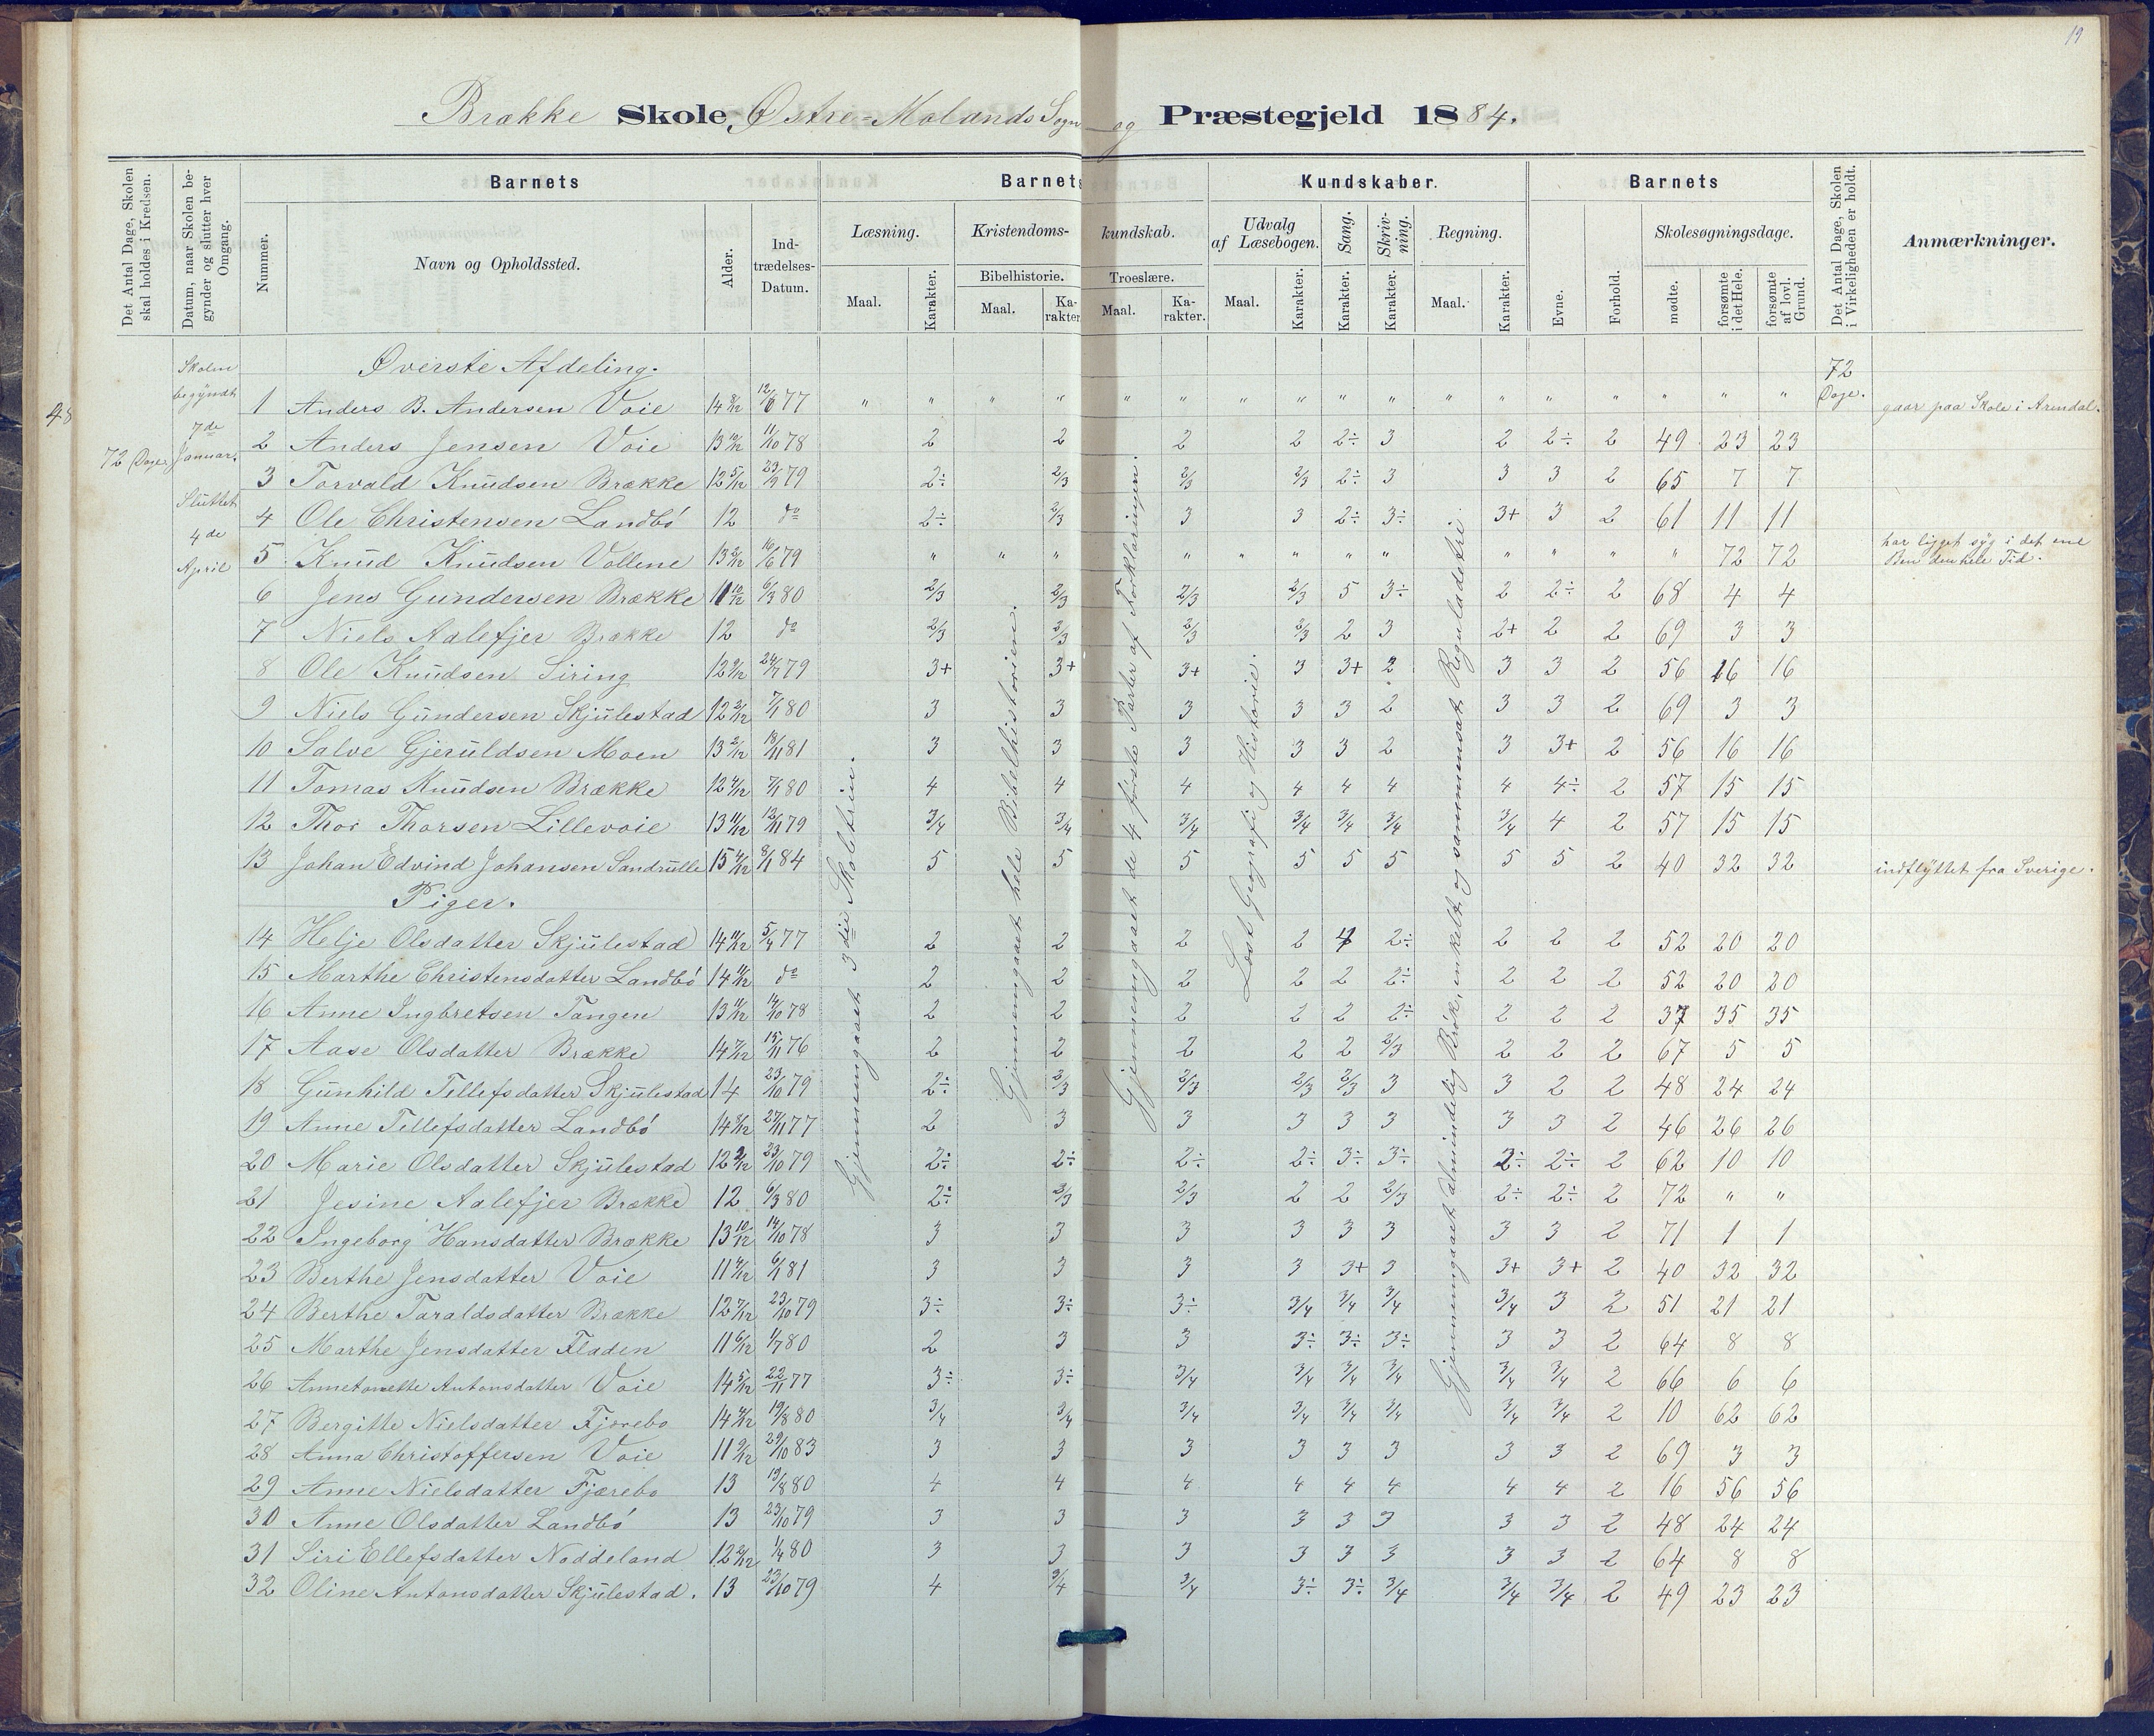 19
Brække Skole, Østre-Molands Sogn og Præstegjeld 1884.
Det Antal Dage, Skolen skal holdes i Kredsen.
Datum, naar Skolen begynder og slutter hver Omgang.
Barnets
Barnets Kundskaber.
Barnets
Det Antal Dage, Skolen i Virkeligheden er holdt.
Anmærkninger.
Nummer. Navn og Opholdssted. Alder. Indtrædelses-Datum.
Læsning. Kristendoms-kundskab. Udvalg af Læsebogen. Sang. Skrivning. Regning.
Evne. Forhold. Skolesøgningsdage.
Bibelhistorie. Troeslære.
Maal. Karakter. Maal. Karakter. Maal. Karakter. Maal. Karakter. Karakter. Karakter. Maal. Karakter.
mødte. forsømte i det Hele. forsømte af lovl. Grund.
48
72 Dage.
Skolen
begyndt
7de
Januar.
Sluttet
4de
April
72
Dage.
Gjennemgaaet 3die Skoletrin.
Gjennemgaaet hele Bibelhistorien.
Gjennemgaaet de 4 første Parter af Forklaringen.
Læst Geografi og Historie.
Gjennemgaaet almindelig Brøk, enkelt og sammensat Reguladetri.
Øverste Afdeling.
1 Anders B. Andersen Voie 14 8/12 12/6 77 " " " " " " " " " " " " " " " " " gaar paa Skole i Arendal.
2 Anders Jensen Voie 13 10/12 11/10 78 2 2 2 2 2÷ 3 2 2÷ 2 49 23 23
3 Torvald Knudsen Brække 12 5/12 79 2÷ 2/3 2/3 2/3 2÷ 3 3 3 2 65 7 7
4 Ole Christensen Landbó 12 do 2÷ 2/3 3 3 2÷ 3÷ 3+ 3 2 61 11 11
5 Knud Knudsen Vollene 13 2/12 16/6 79 " " " " " " " " " " " " 72 72 har ligget syg i det ene Ben den hele Tid.
6 Jens Gundersen Brække 11 10/12 6/3 80 2/3 2/3 2/3 2/3 5 3÷ 2 2÷ 2 68 4 4
7 Niels Aalefjer Brække 12 do 2/3 2/3 2/3 2/3 2 3 2+ 2 2 69 3 3
8 Ole Knudsen Siring 12 9/12 24/7 79 3+ 3+ 3+ 3 3+ 2 3 3 2 56 16 16
9 Niels Gundersen Skjulestad 12 3/12 7/1 80 3 3 3 3 3 2 3 3 2 69 3 3
10 Salve Gjeruldsen Moen 13 2/12 18/11 81 3 3 3 3 3 2 3 3+ 2 56 16 16
11 Tomas Knudsen Brække 12 4/12 7/1 80 4 4 4 4 4 4 4 4÷ 2 57 15 15
12 Thor Thorsen Lillevoie 13 11/12 12/11 79 3/4 3/4 3/4 3/4 3/4 3/4 3/4 4 2 57 15 15
13 Johan Edvind Johansen Sandrulle 15 4/12 8/1 84 5 5 5 5 5 5 5 5 2 40 32 32 indflyttet fra Sverige.
Piger.
14 Helje Olsdatter Skjulestad 14 11/12 5/4 77 2 2 2 2 4 2÷ 2 2 2 52 20 20
15 Marthe Christensdatter Landbó 14 11/12 do 2 2 2 2 2 2÷ 2 2 2 52 20 20
16 Anne Ingbretsen Tangen 13 11/12 14/10 78 2 2 2 2 2 2÷ 2 2 2 37 35 35
17 Aase Olsdatter Brække 14 7/12 15/11 76 2 2 2 2 2 2/3 2 2 2 67 5 5
18 Gunhild Tellefsdatter Skjulestad 14 23/10 79 2÷ 2/3 2/3 2/3 2/3 3 3 2 2 48 24 24
19 Anne Tellefsdatter Landbó 14 8/12 27/11 77 2 3 3 3 3 3 3 3 2 46 26 26
20 Marie Olsdatter Skjulestad 12 2/12 23/10 79 2÷ 2÷ 2÷ 2÷ 3÷ 3÷ 2÷ 2÷ 2 62 10 10
21 Jesine Aalefjer Brække 12 6/3 80 2÷ 2/3 2/3 2 2 2/3 2÷ 2÷ 2 72 " "
22 Ingeborg Hansdatter Brække 13 10/12 14/10 78 3 3 3 3 3 3 3 3 2 71 1 1
23 Berthe Jensdatter Voie 11 4/12 6/1 81 3 3 3 3 3+ 3 3+ 3+ 2 40 32 32
24 Berthe Taraldsdatter Brække 12 7/12 23/10 79 3÷ 3÷ 3÷ 3/4 3/4 3/4 3/4 3 2 51 21 21
25 Marthe Jensdatter Fladen 11 6/12 1/7 80 2 3 3 3÷ 3÷ 3÷ 3 3 2 64 8 8
26 Annetonette Antonsdatter Voie 14 5/12 22/11 77 3÷ 3÷ 3/4 3/4 3/4 3/4 3/4 3/4 2 66 6 6
27 Bergitte Nielsdatter Fjærebo 14 19/8 80 3/4 3/4 3/4 3/4 3/4 3/4 3/4 3/4 2 10 62 62
28 Anna Christoffersen Voie 11 9/12 29/10 83 3 3 3 3 3 3 3 3 2 69 3 3
29 Anne Nielsdatter Fjærebo 13 19/8 80 4 4 4 4 4 4 4 4 2 16 56 56
30 Anne Olsdatter Landbó 13 23/10 79 3 3 3 3 3 3 3 3 2 48 24 24
31 Siri Ellefsdatter Noddeland 12 2/12 1/4 80 3 3 3 3 3 3 3 3 2 64 8 8
32 Oline Antonsdatter Skjulestad. 13 23/10 79 4 3/4 3/4 3÷ 3÷ 3/4 3/4 3/4 2 49 23 23